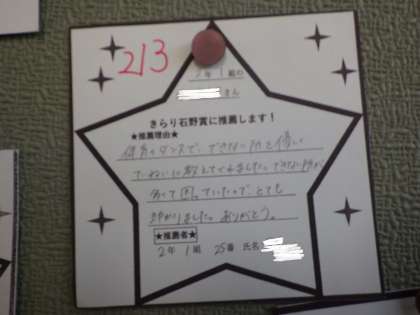 213
2年 1組の
さん
きらり石野賞に推薦します！
★推薦理由★
体育のダンスで、できない所を優しく
ていねいに教えてくれました。できない所が
多くて困っていたので とても
助かりました。ありがとう。
★推薦者★
2年 1組 25番 氏名